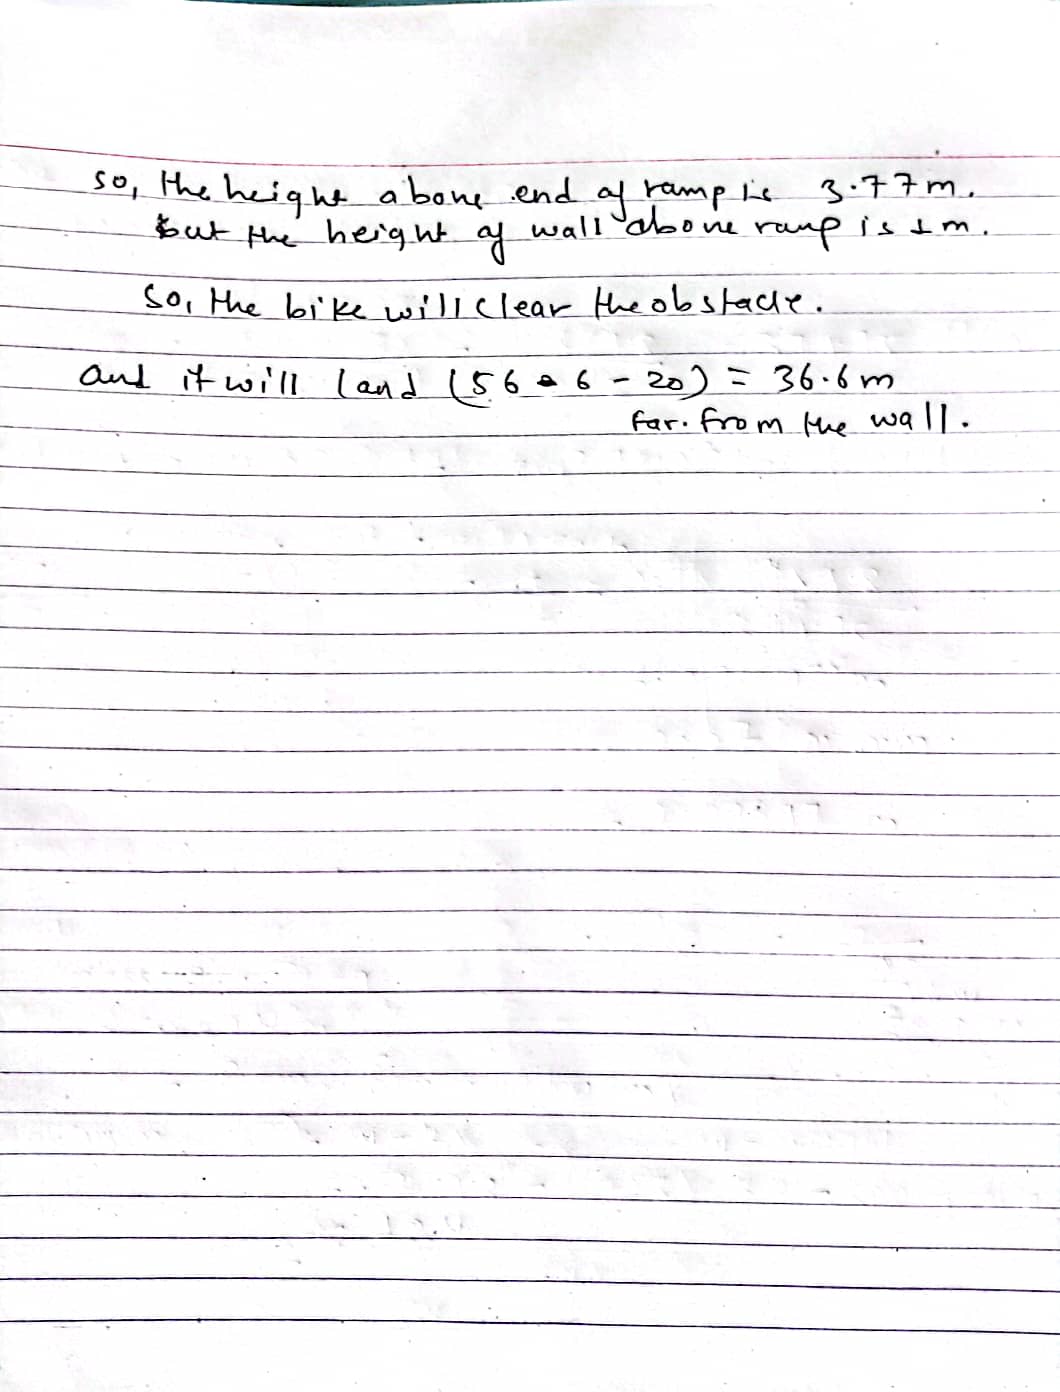 so, the height above end of ramp is 3.77m.
but the height of wall above ramp is 1m.
So, the bike will clear the obstacle.
and it will land (56.6 - 20) = 36.6m
far. from the wall.